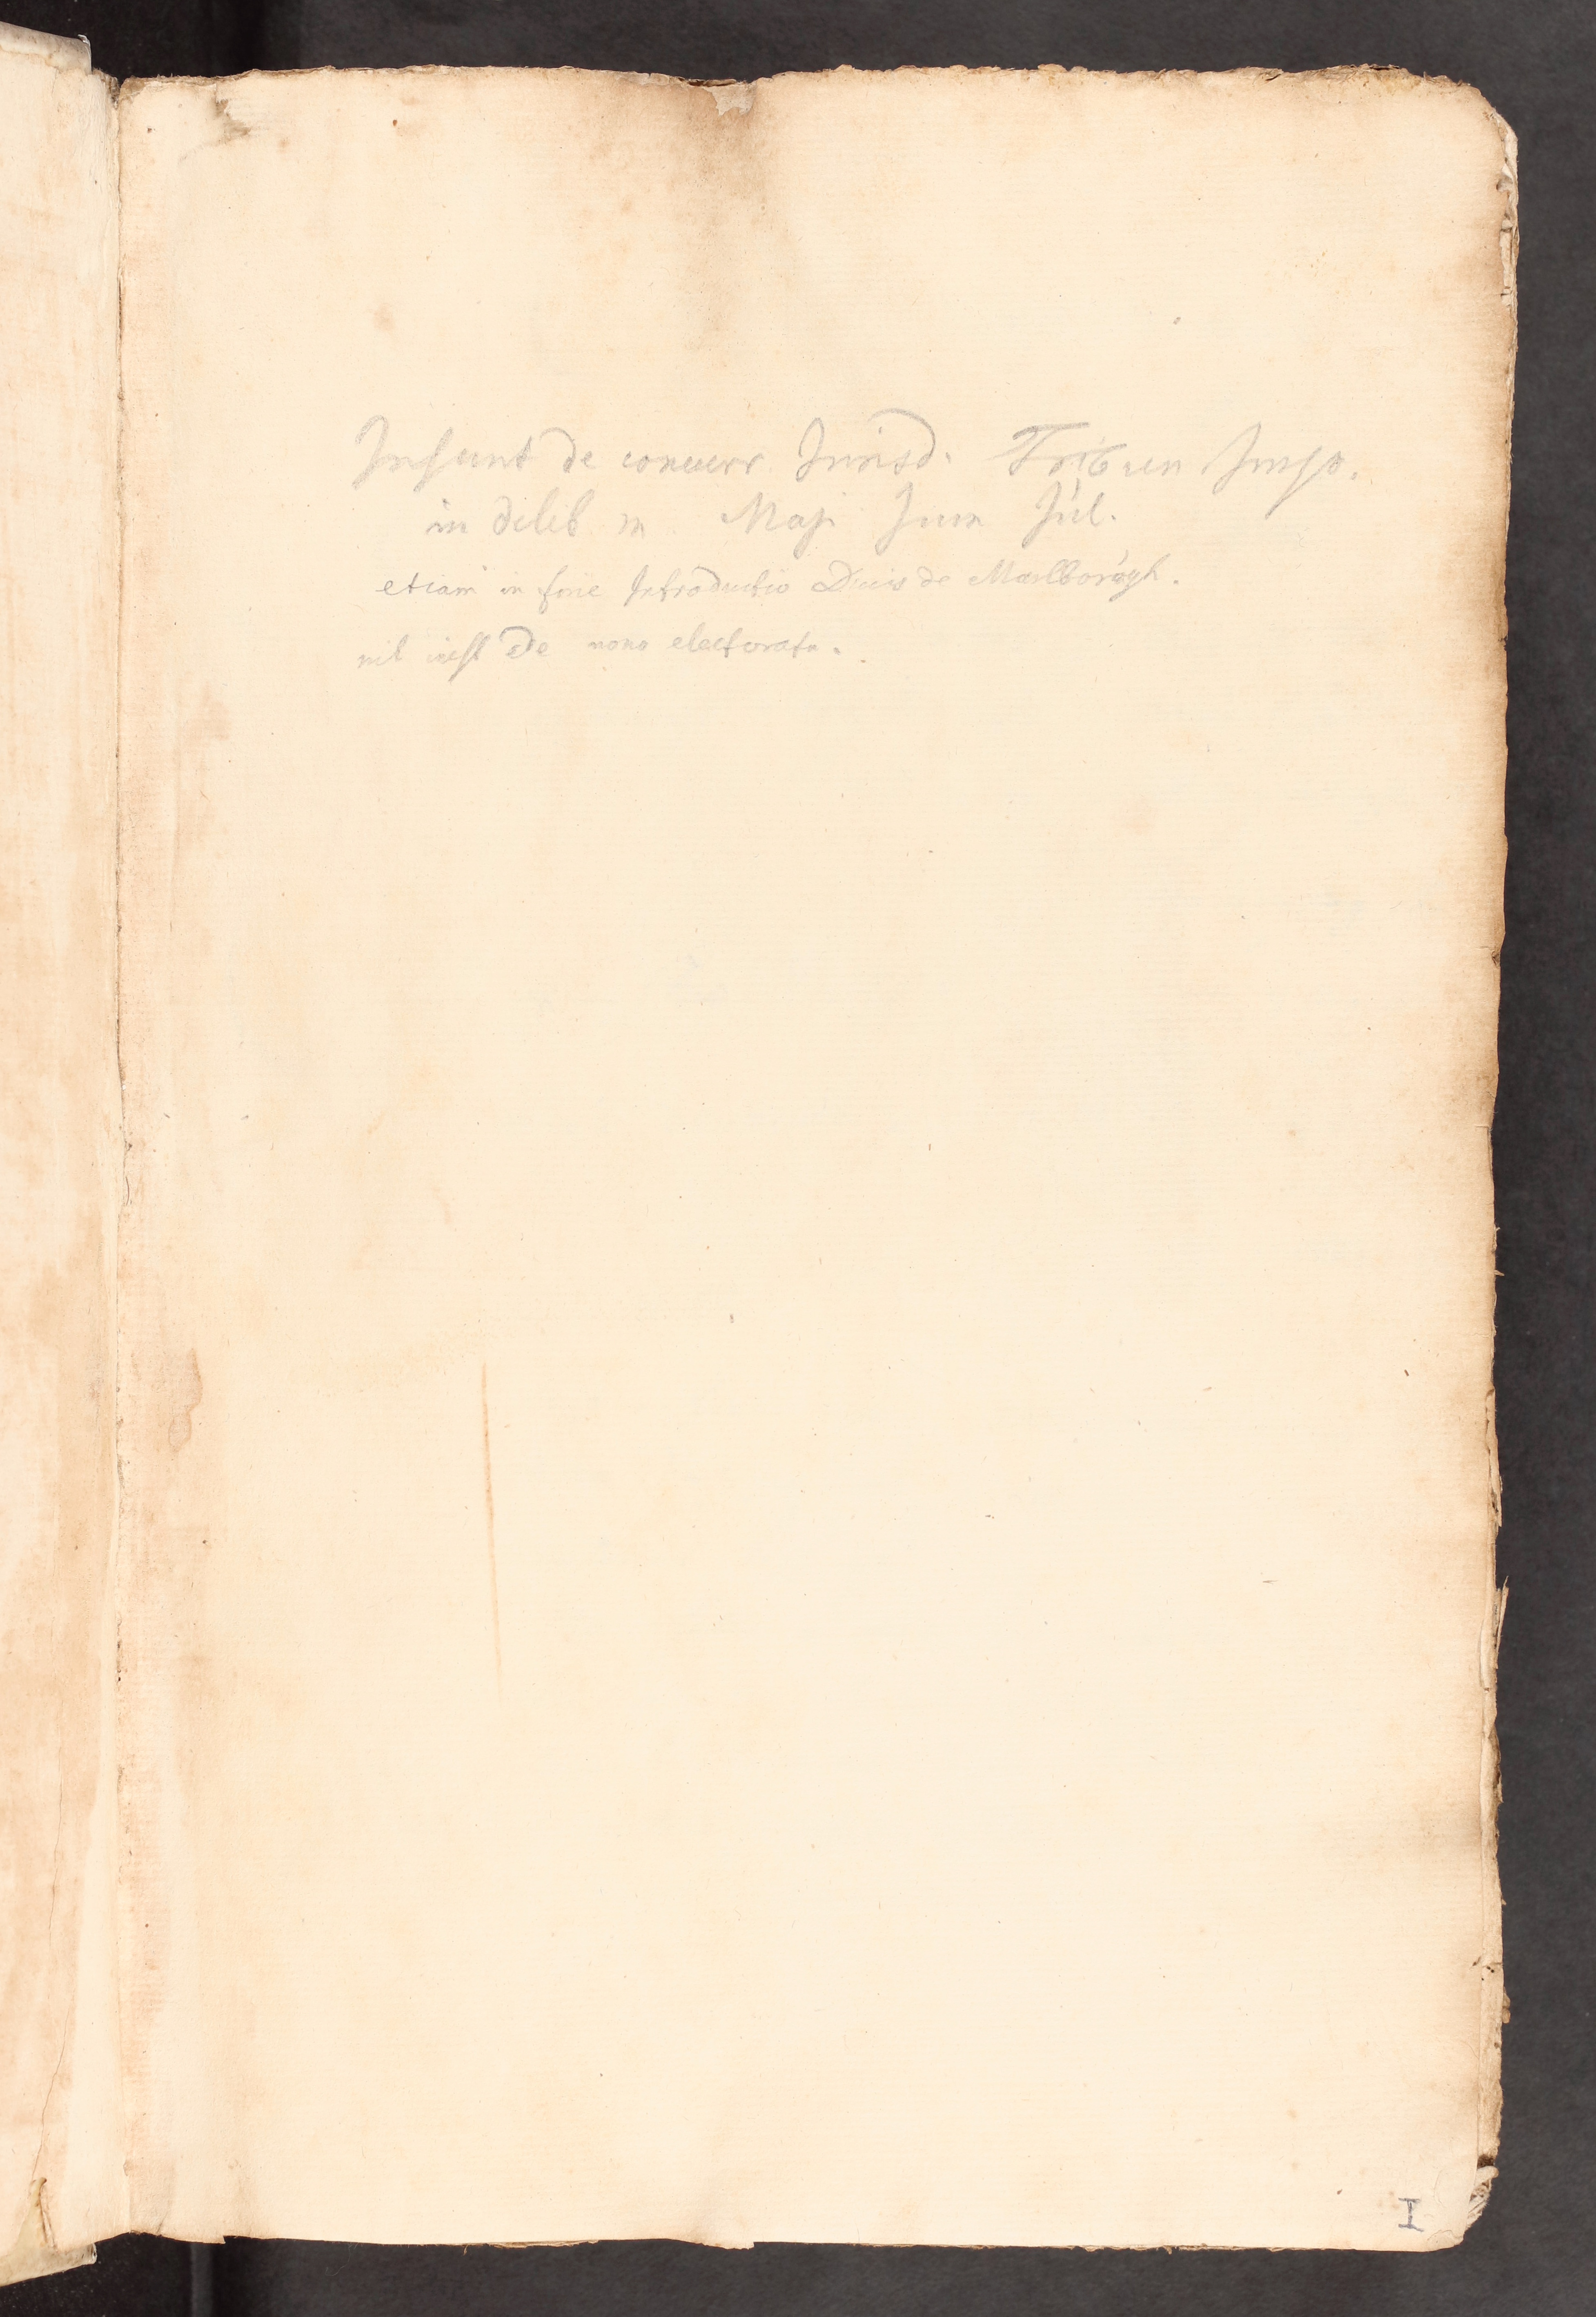 Insunt de concurr Jurisd. Tribun Imp.
in delib m Maji Jun Jul.
etiam in fine Introductio Ducis de Marlborogh.
nil inest de nono electoratu.
I